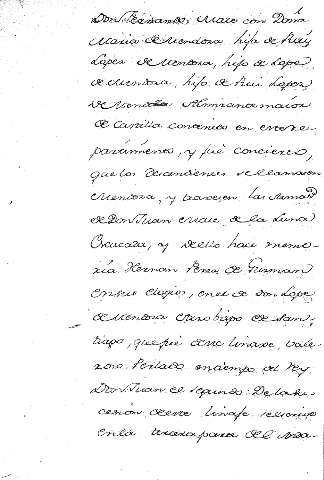 Don Fernando; Mate con Doña
Maria de Mendoza hija de Ruy
Lopez de Mendoza, hijo de Lope
de Mendoza, hijo de Rui Lopez
de Mendoza Almirante maior
de Castilla contenido en este re-
partimiento, y fue concierto,
que los descendientes se llamasen
Mendoza, y traxesen las Armas
de Don Juan Mate de la Luna
Escacada, y dello hace memo-
ria Hernan Perez de Guzman
en sus elogios, en el de don Lope
de Mendoza Arzobispo de San-
tiago, que fue de este linaxe, vale-
roso Perlado en tiempo del Rey
Don Juan el segundo: De la su-
cesión deste linaje se
en la para de el